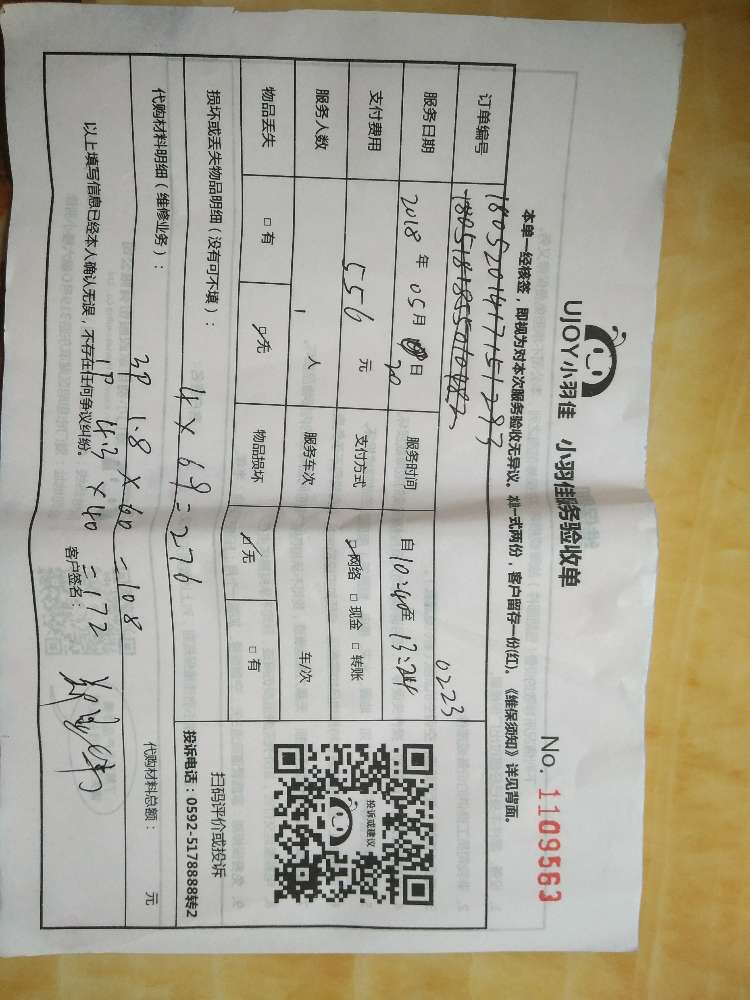 UJOY小羽佳 小羽佳服务验收单
No. 1109563
本单一经核签，即视为对本次服务验收无异议。本单一式两份，客户留存一份(红)。《维保须知》详见背面。
订单编号 1805201417151293
0223
服务日期 2018 年 05 月 20 日 服务时间 自 10:40 至 13:24
支付费用 556 元 支付方式 ☑网络 □现金 □转账
服务人数 1 人 服务车次 车/次
物品丢失 □有 ☑无 物品损坏 ☑无 □有
投诉或建议
扫码评价或投诉
投诉电话：0592-5178888转2
损坏或丢失物品明细（没有可不填）：
4×69=276
代购材料明细（维修业务）：
3P 1.8×60=108
1P 4.3×40=172
代购材料总额： 元
以上填写信息已经本人确认无误，不存在任何争议纠纷。 客户签名：